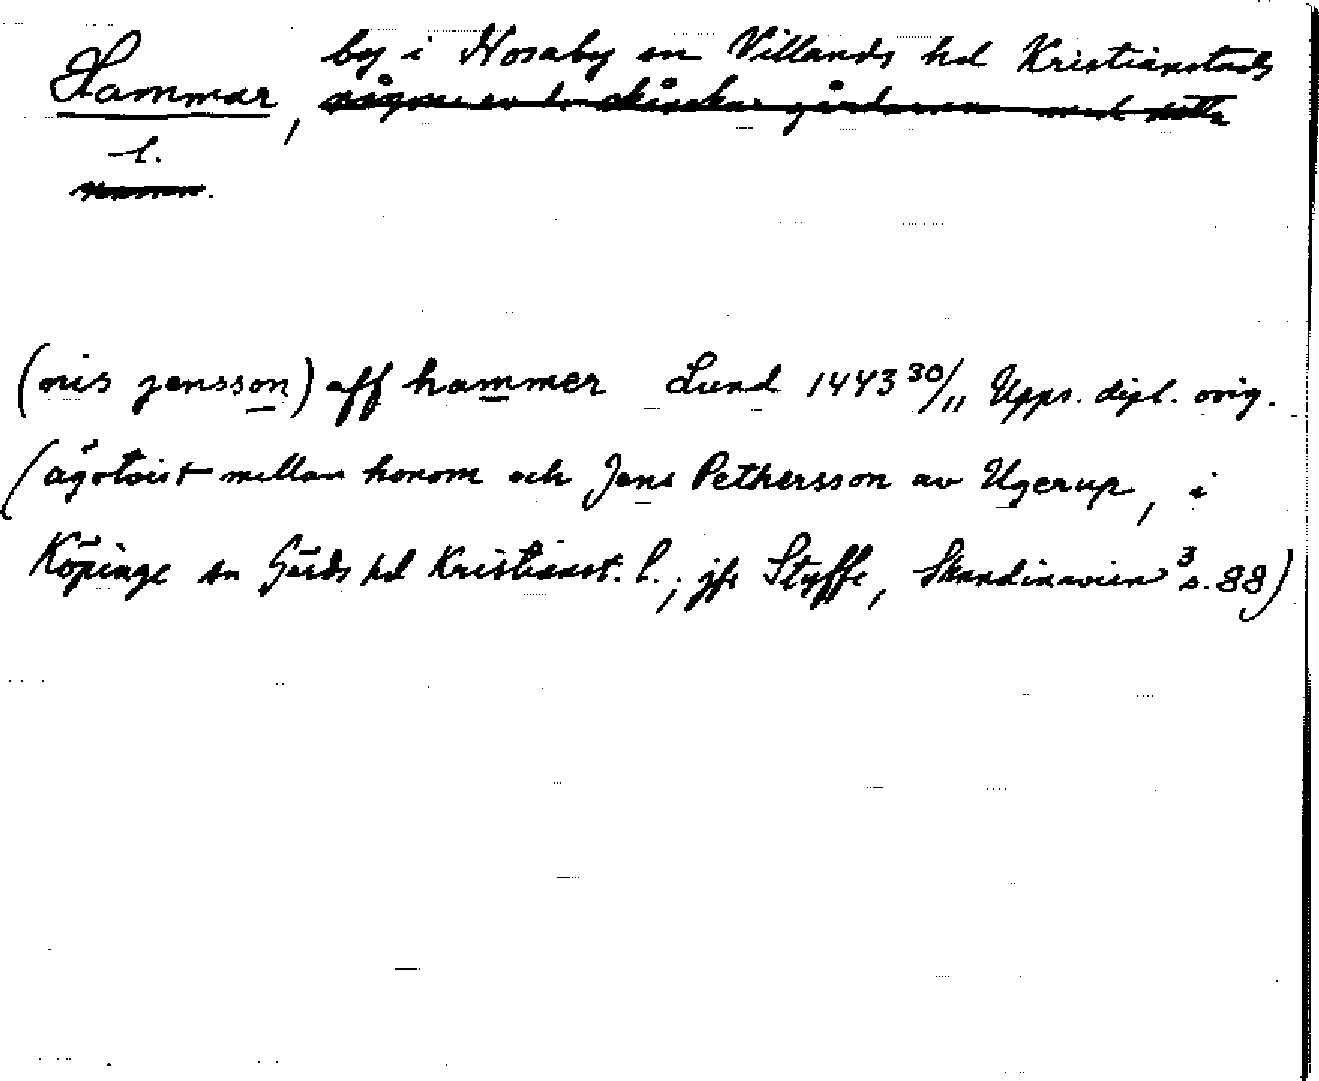 Hammar, by i Nosaby sn Villands hd Kristianstads
någon av de skånska gårdarna med detta
l.
namn.
(nis jensson) aff hammer Lund 1443 30/11 Upps. dipl. orig.
(ägotvist mellan honom och Jens Pethersson av Ugerup, i
Köpinge sn Gärds hd Kristianst. l., jfr Styffe, Skandinavien³ s. 88)